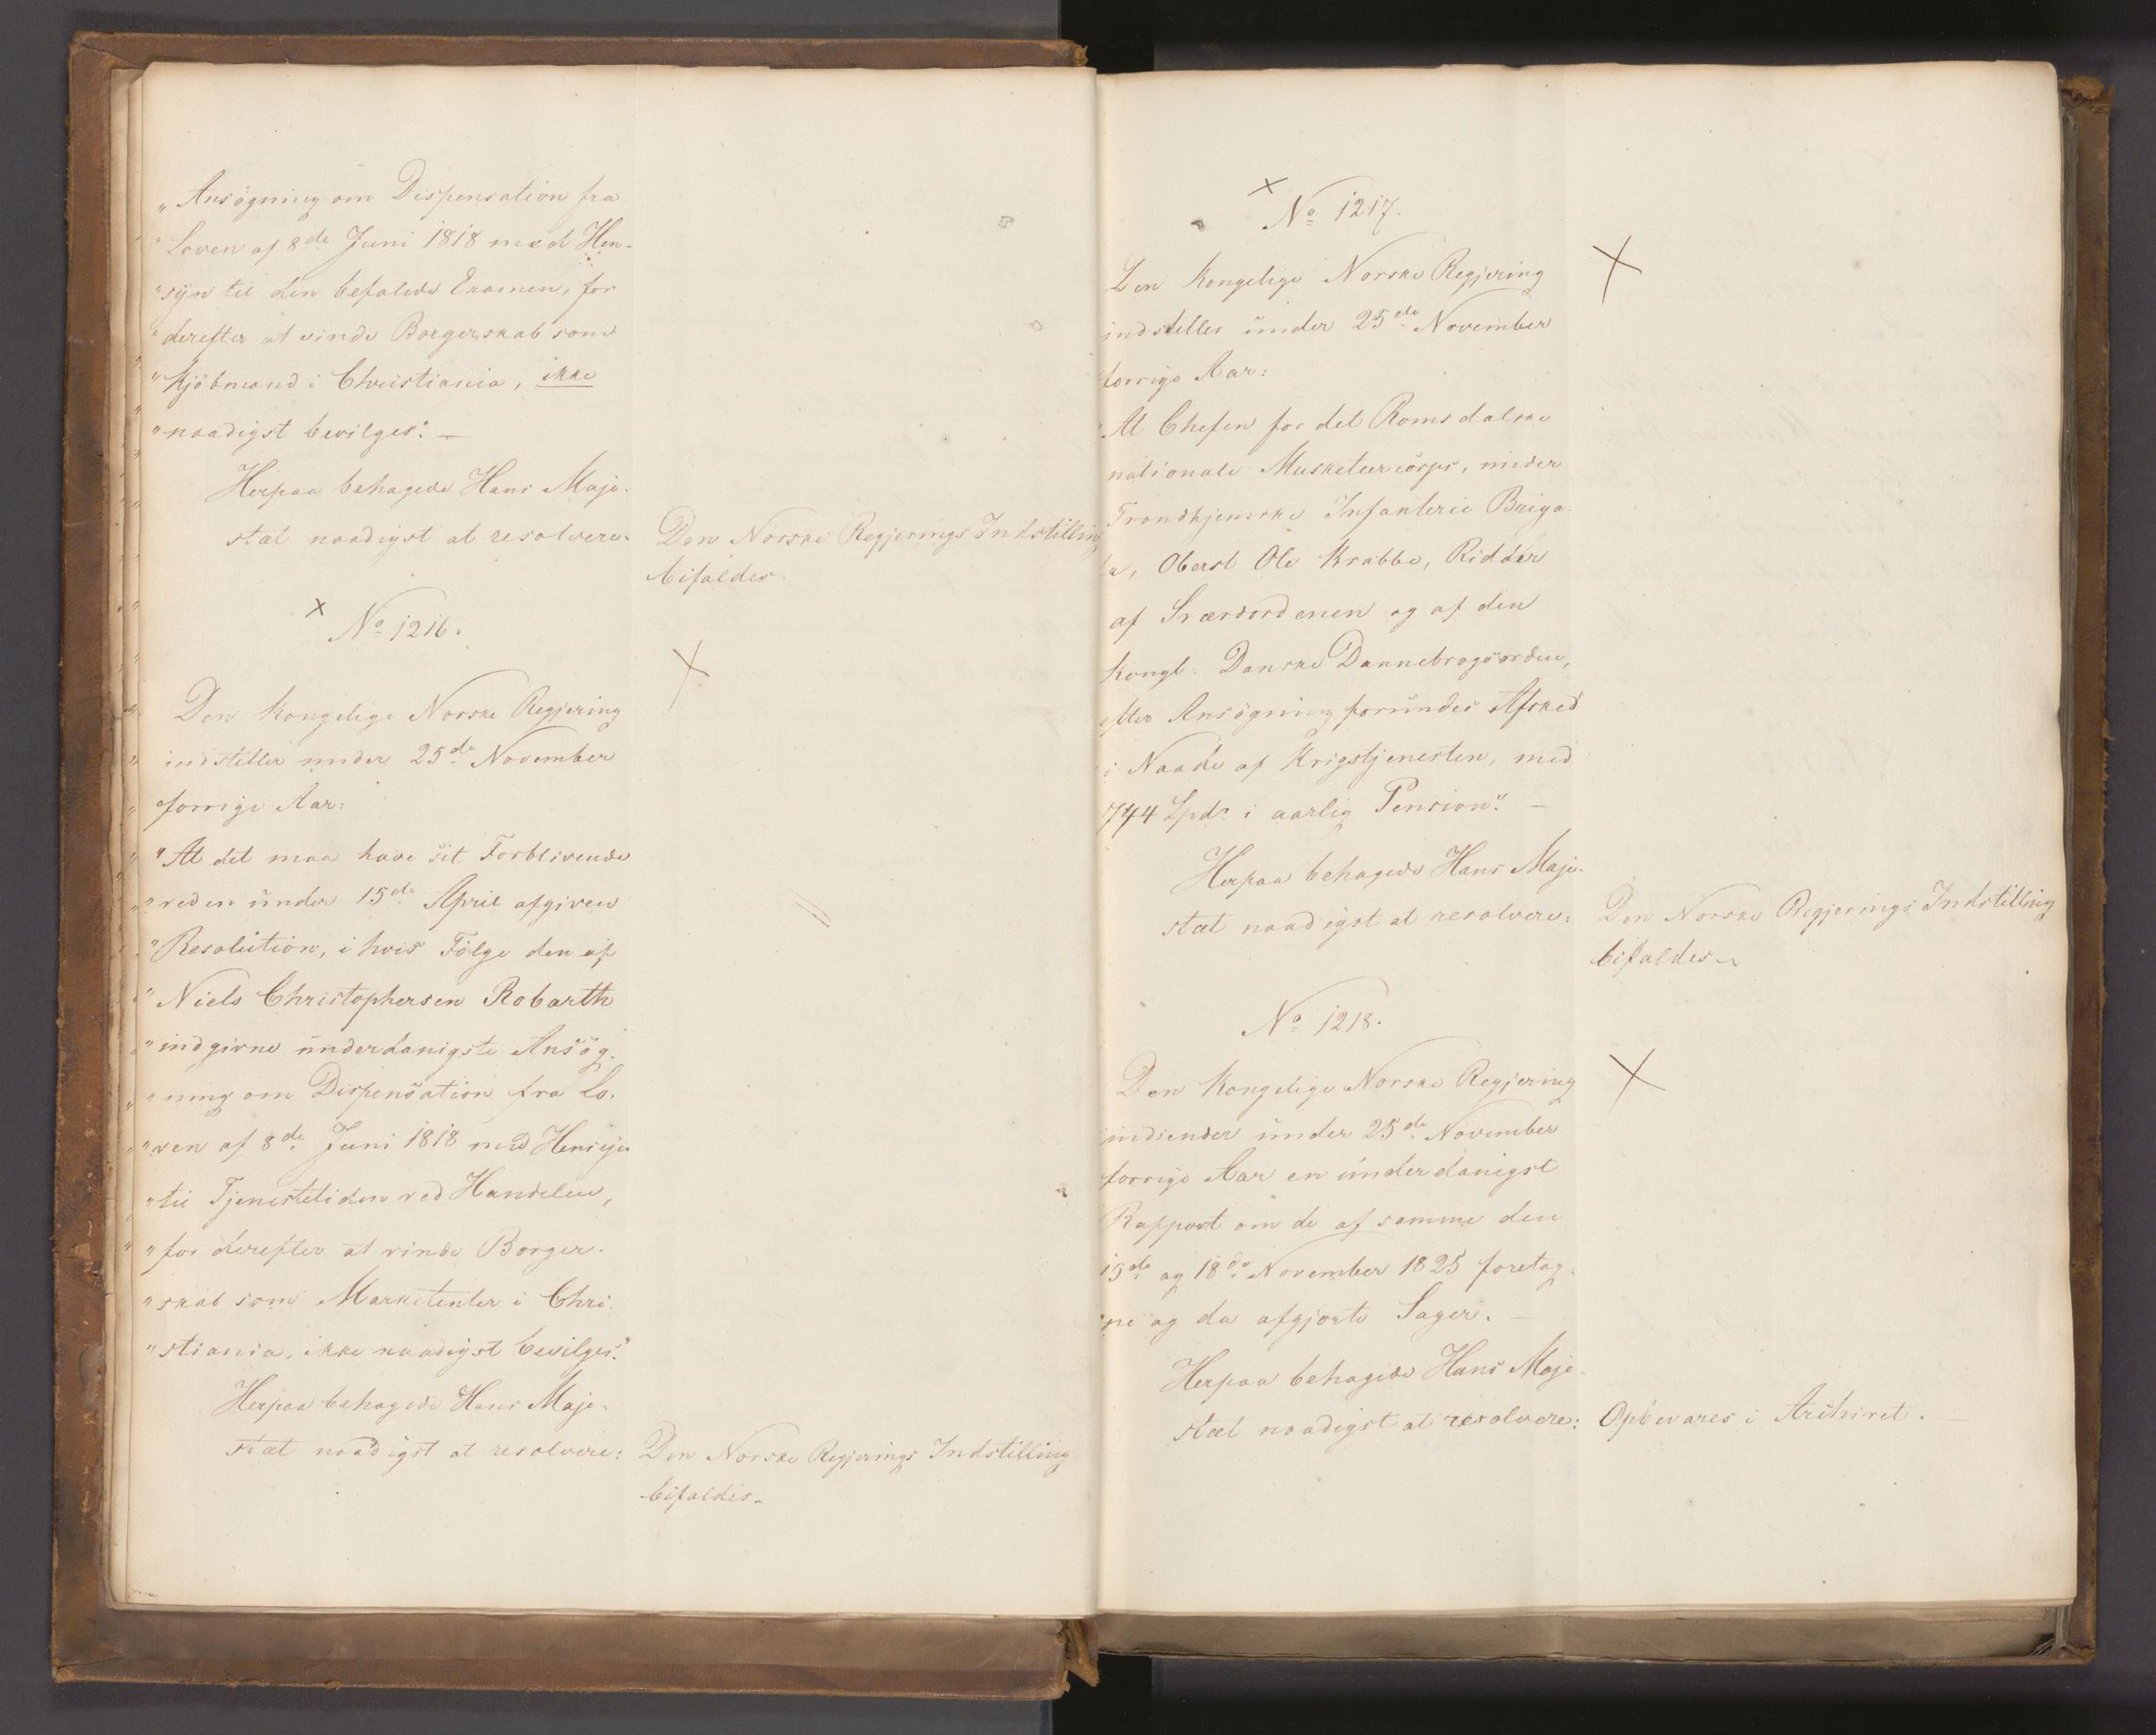 „Ansögning om Dispensation fra
"Loven af 8de Juni 1818 med Hen-
"syn til den befalede Examen, for
"derefter at vinde Borgerskab som
"Kjöbmand i Christiania, ikke
"naadigst bevilges". —
Herpaa behagede Hans Maje-
stæt naadigst at resolvere:
Den Norske Regjerings Indstilling
bifaldes.
x
No 1216.
x
Den Kongelige Norske Regjering
indstiller under 25de November
forrige Aar:
"At det maa have sit Forblivende
"ved en under 15de April afgiven
"Resolution, i hvis Fölge den af
"Niels Christophersen Robarth
"indgivne underdanigste Ansög-
"ning om Dispensation fra Lo-
"ven af 8de Juni 1818 med Hensyn
"til Tjenestetiden ved Handelen,
"for derefter at vinde Borger-
"skab som Marketenter i Chri-
"stiania, ikke naadigst bevilges".
Herpaa behagede Hans Maje-
stæt naadigst at resolvere:
Den Norske Regjerings Indstilling
bifaldes.
x
No 1217.
x
Den Kongelige Norske Regjering
indstiller under 25de November
forrige Aar:
"At Chefen for det Romsdalske
nationale Musketeercorps, under
Trondhjemske Infanterie Briga-
de, Oberst Ole Krabbe, Ridder
af Sværdordenen og af den
Kongl. Danske Dannebrogsorden,
efter Ansögning forundes Afsked
i Naade af Krigstjenesten, med
744 Spdr i aarlig Pension". —
Herpaa behagede Hans Maje-
stæt naadigst at resolvere:
Den Norske Regjerings Indstilling
bifaldes.
No 1218.
x
Den Kongelige Norske Regjering
indsender under 25de November
forrige Aar en underdanigst
Rapport om de af samme den
15de og 18de November 1825 foretag-
ne og da afgjorte Sager. —
Herpaa behagede Hans Maje-
stæt naadigst at resolvere:
Opbevares i Archivet.